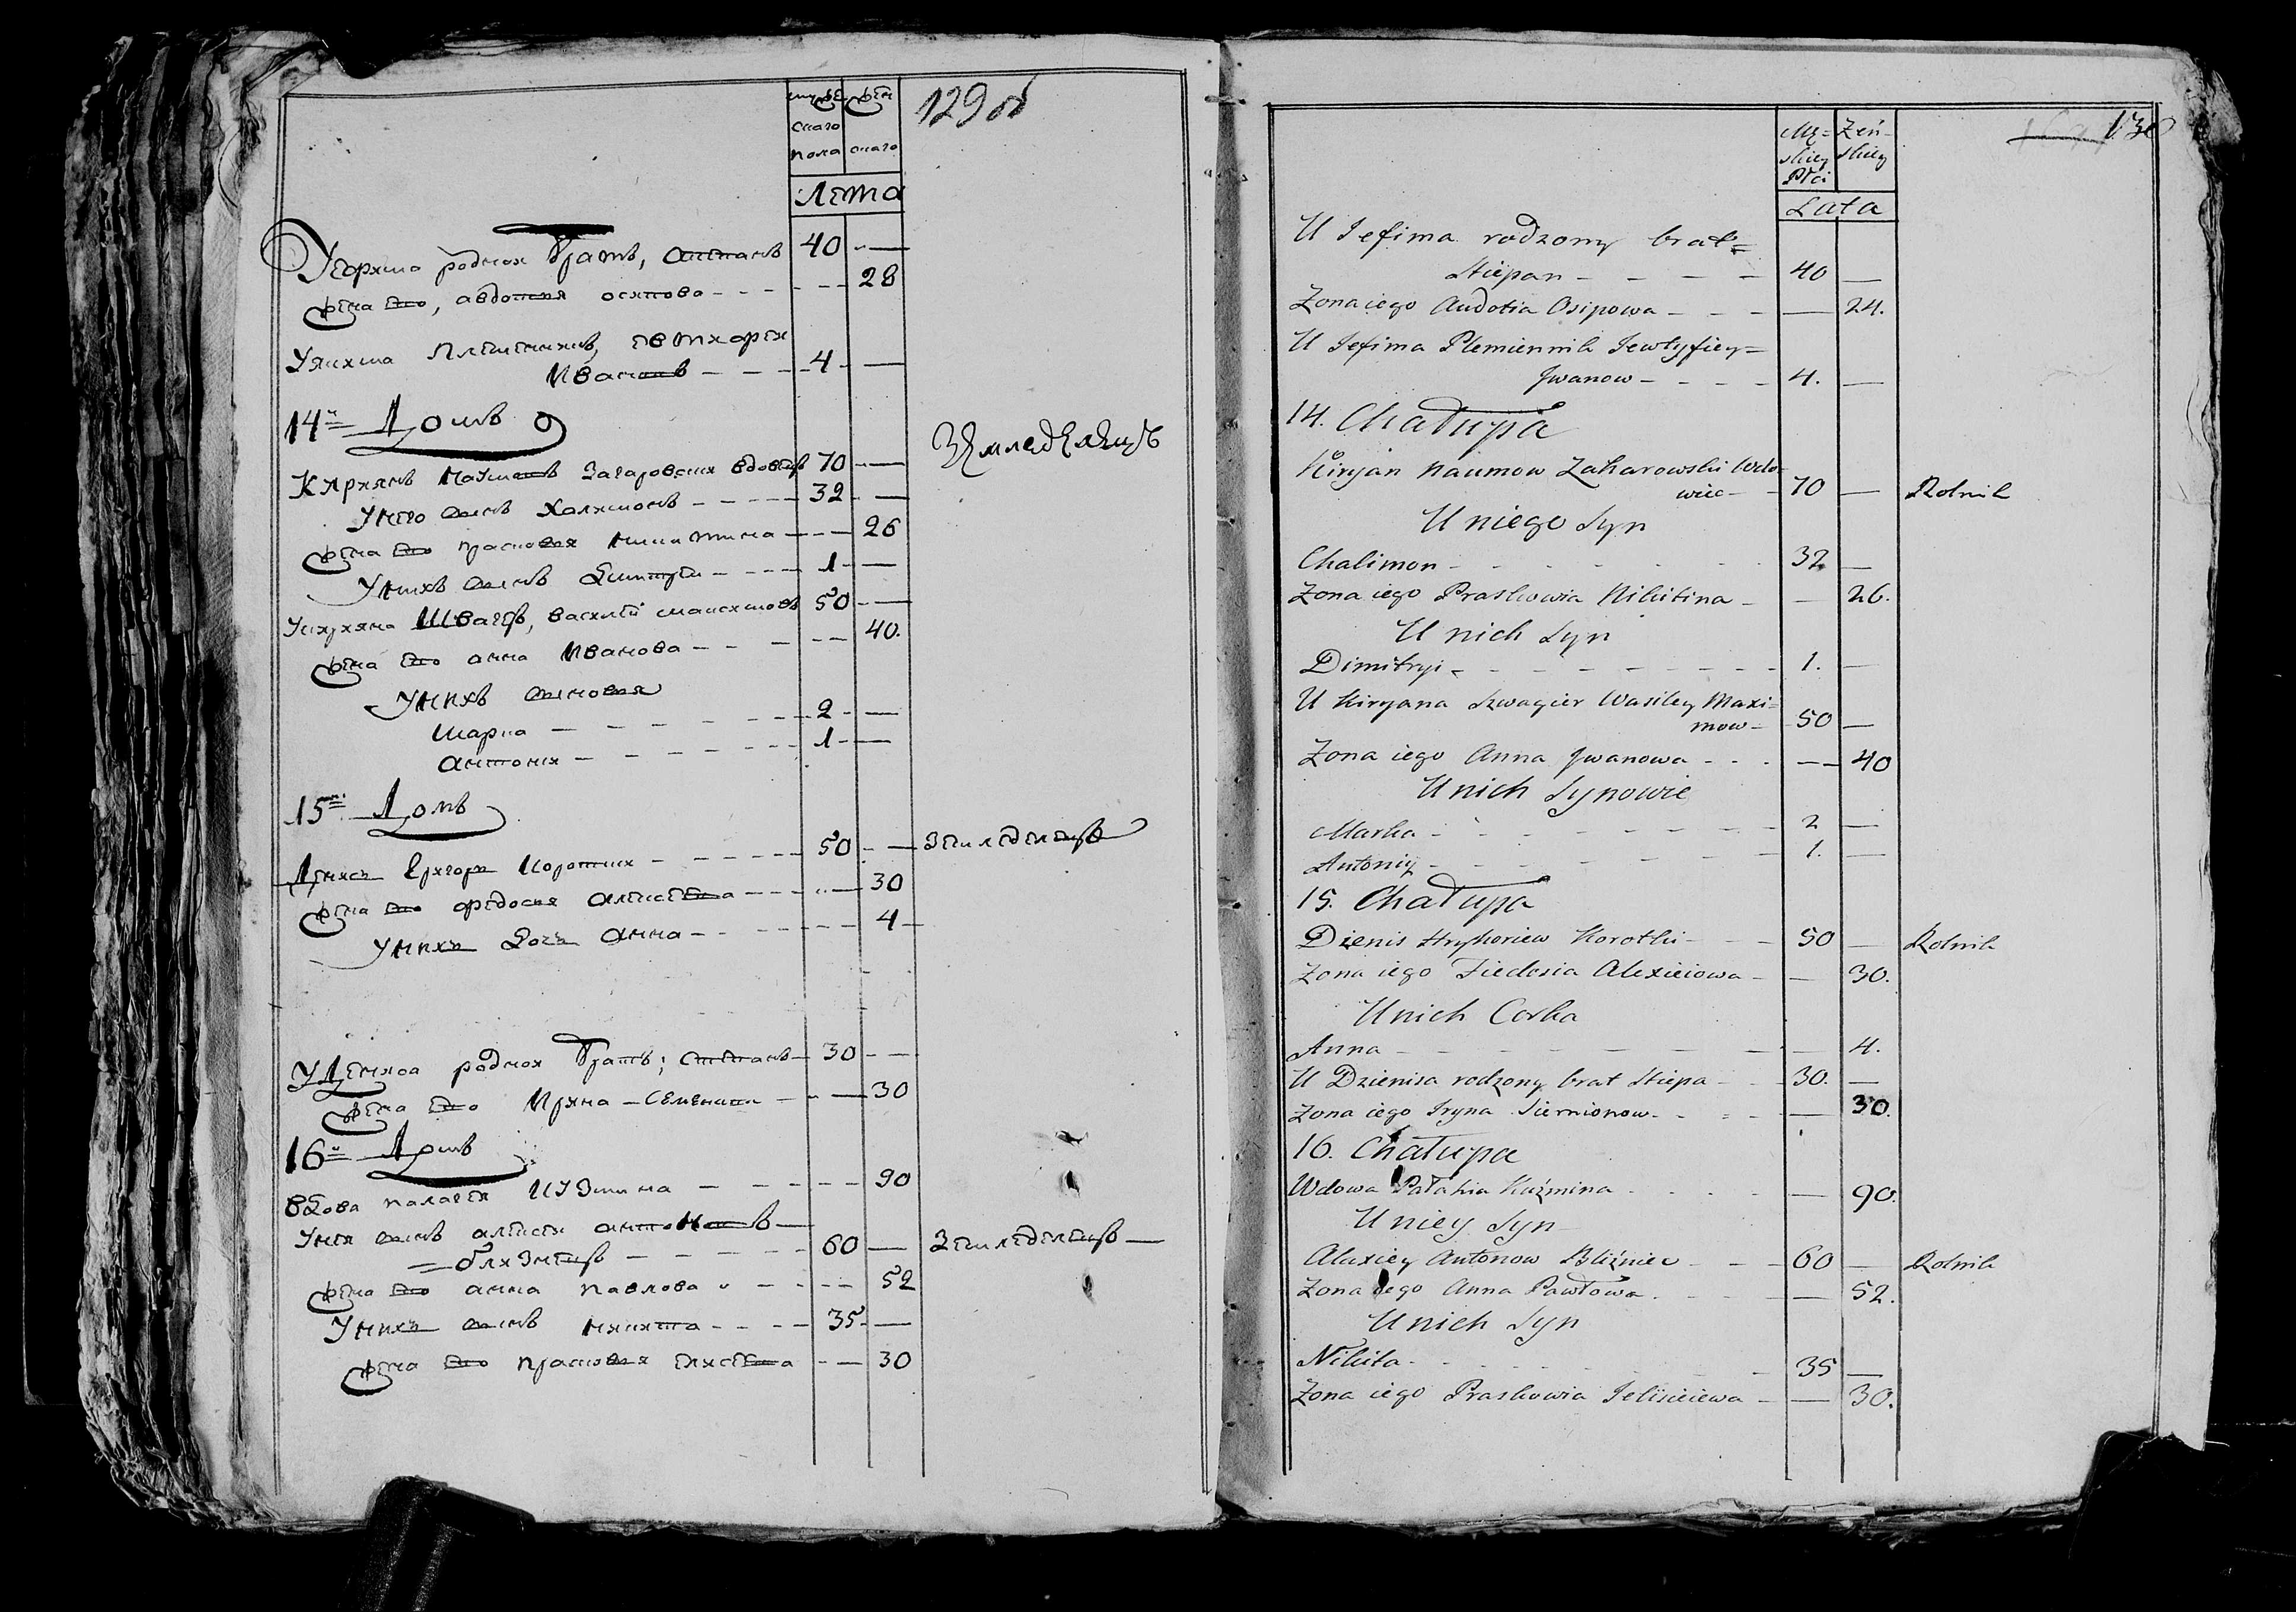 мужескаго пола
женскаго
129 об
Лета
родной братъ, Степанъ 40 —
жена его, авдотия осипова — 28
племенникъ,
Ивановъ — 4 —
14й Домъ
Кирианъ Наумовъ Загаровский вдовецъ 70 — Земледелецъ
Унего сынъ Халимонъ — 32 —
жена его прасковия никитина — 26
Унихъ сынъ Димитрий — 1 —
Швагеръ, василий максимовъ 50 —
жена его анна Иванова — 40.
Унихъ сыновья
марко — 2 —
антоний — 1 —
15й Домъ
Денисъ Григорив Короткий — 50 — земледелецъ
жена его федосия алексеева — 30
Унихъ дочь анна — 4 —
УДениса родной братъ, Степанъ — 30 —
жена его Ирина Семенова — 30
16й Домъ
вдова палагея Кузмина — 90
Унея сынъ алексей антоновъ
близнецъ — 60 — земледелецъ
жена его анна павлова — 52
Унихъ сынъ никита — 35 —
жена его прасковия елисеева — 30
Mę=skiey Płci
Żeń-skiey
130
Lata
U Jefima rodzony brat=
Stiepan — 40 —
Żona iego Audotia Osipowa — 24.
U Jefima Plemiennik Jewtyfiey=
Jwanow — 4. —
14. Chałupa
Kirjan Naumow Zaharowski Wdo=
wiec — 70 — Rolnik
U niego Syn
Chalimon — 32 —
Żona iego Praskowia Nikitina — 26.
U nich Syn
Dimitryi — 1. —
U Kiryana Szwagier Wasiley Maxi=
mow — 50 —
Żona iego Anna Jwanowa — 40
U nich Synowie
Marka — 2 —
Antoniy — 1. —
15. Chałupa
Dzienis Hryhoriew Korotki — 50 — Rolnik
Żona iego Fiedosia Alexieiowa — 30.
U nich Corka
Anna — 4.
U Dzienisa rodzony brat Stiepa — 30. —
Żona iego Iryna Siemionow — 30.
16. Chałupa
Wdowa Pałahia Kuźmina — 90.
U niey Syn
Alaxiey Antonow Bliźniec — 60 — Rolnik
Żona iego Anna Pawłowa — 52.
U nich Syn
Nikita — 35 —
Żona iego Praskowia Jelisieiewa — 30.